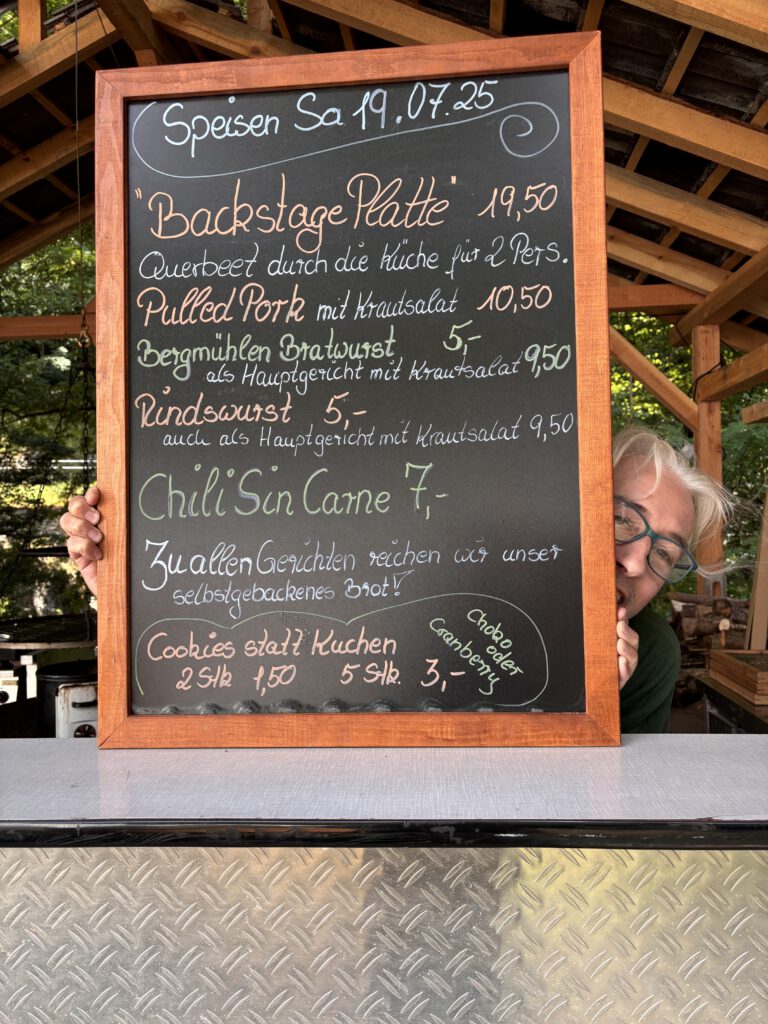 Speisen Sa 19.07.25
"Backstage Platte" 19,50
Querbeet durch die Küche für 2 Pers.
Pulled Pork mit Krautsalat 10,50
Bergmühlen Bratwurst 5,-
als Hauptgericht mit Krautsalat 9,50
Rindswurst 5,-
auch als Hauptgericht mit Krautsalat 9,50
Chili Sin Carne 7,-
Zu allen Gerichten reichen wir unser
selbstgebackenes Brot!
Cookies statt Kuchen
2 Stk 1,50 5 Stk. 3,-
Choko
oder
Cranberry